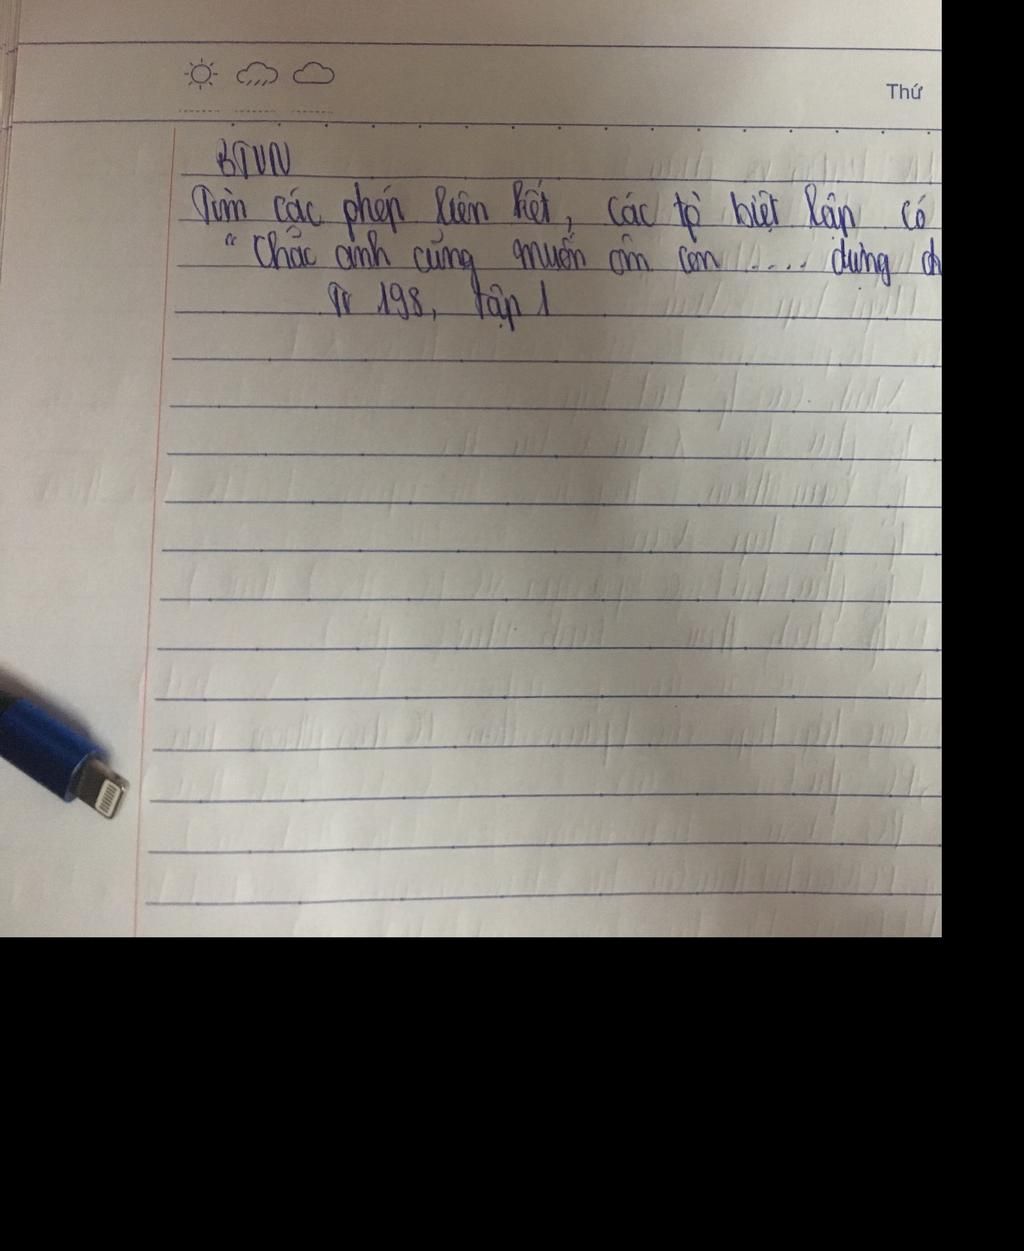 Thứ
BTVN
Tìm các phép liên kết, các tp biệt lập có
“ Chắc anh cũng muốn ôm con .... dưng ch
Tr 198, tập 1